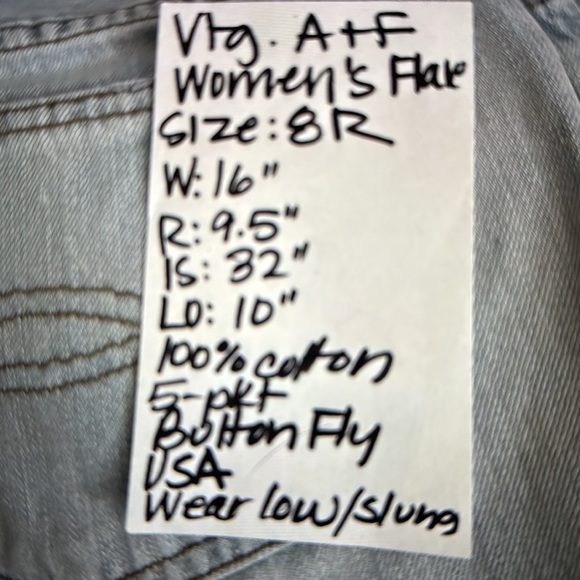 Vtg. A+F
Women's Flare
Size: 8R
W: 16"
R: 9.5"
IS: 32"
LO: 10"
100% cotton
5-pkt
Button Fly
USA
Wear low/slung